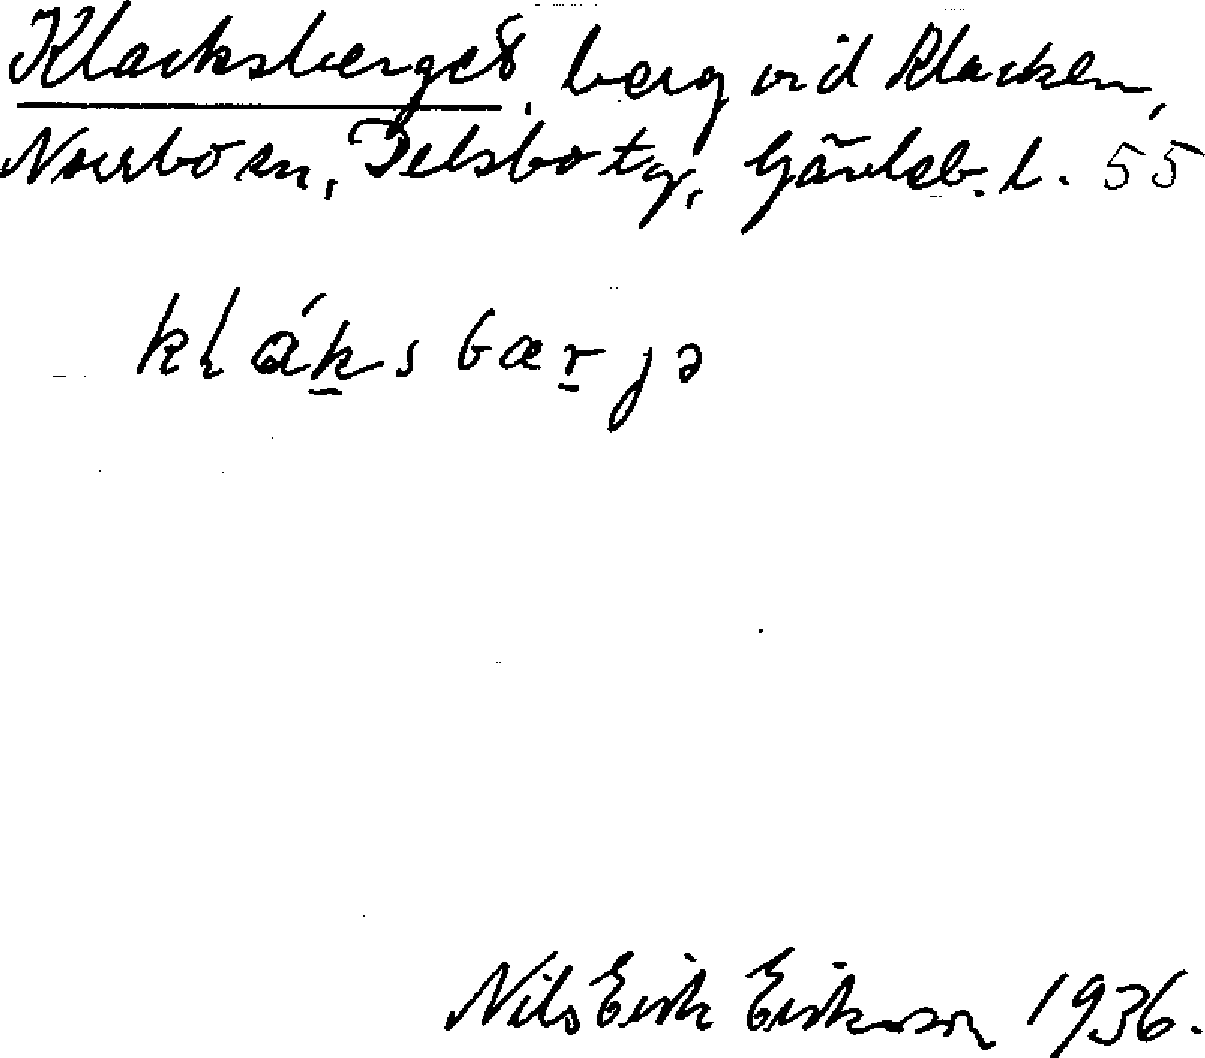 Klacksberget, berg vid Klacken,
Norrboän, Delsbo tg, Gävleb. l. 55
kláksbærjə
Nils Erik Eriksson 1936.